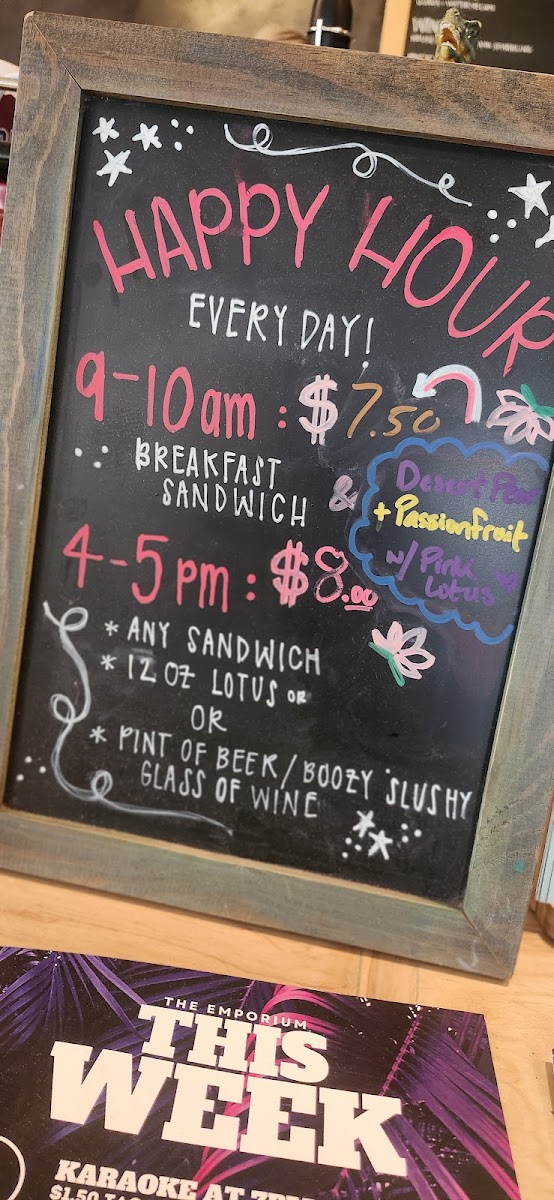 HAPPY HOUR
EVERY DAY!
9-10am : $7.50
BREAKFAST
SANDWICH &
Desert Pear
+ Passionfruit
w/ Pink
Lotus
4-5pm : $8.00
* ANY SANDWICH
* 12 OZ LOTUS OR
OR
* PINT OF BEER/BOOZY SLUSHY
GLASS OF WINE
THE EMPORIUM
THIS
WEEK
KARAOKE AT 7PM